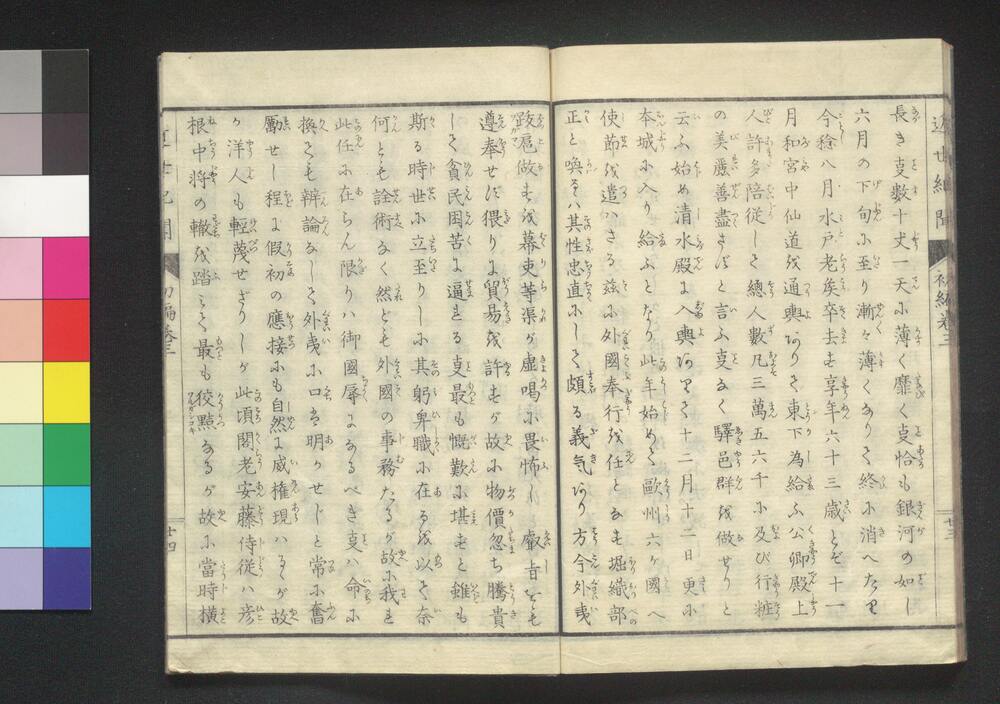 長き支數十丈一天に薄く靡く支恰も銀河の如し
六月の下旬に至り漸々薄くありて終に消へたり
今稔八月水戸老矦卒去す享年六十三歳とぞ十一
月和宮中仙道を通輿ありて東下為給ふ公卿殿上
人許多陪従して總人數凡三萬五六千に及び行粧
の美麗善盡さずと言ふ支なく驛邑群を做せりと
云ふ始め清水殿に入輿ありて十二月十一日更に
本城に入り給ふとなり此年始めて歐州六ケ國へ
使節を遣はさる茲に外國奉行を任となす堀織部
正と喚るは其性忠直にして頗る義気あり方今外夷
跋扈做すを幕吏等渠が虚喝に畏怖し叡旨をも
遵奉せず猥りに貿易を許すが故に物價忽ち騰貴
して貧民困苦に逼まる支最も慨歎に堪ずと雖も
斯る時世に立至りしに其躬卑職に在るを以て奈
何とも詮術なく然ども外國の事務たるが故に我も
此任に在らん限りは御國辱になるべき支は命に
換ても辯論なして外夷に口は明かせじと常に奮
勵せし程に假初の應接にも自然に威権現はるゝが故
か洋人も輕蔑せざりしが此頃閣老安藤侍従は彦
根中将の轍を踏ミて最も狡黠なるが故に當時横
初編巻三
廿三
廿四